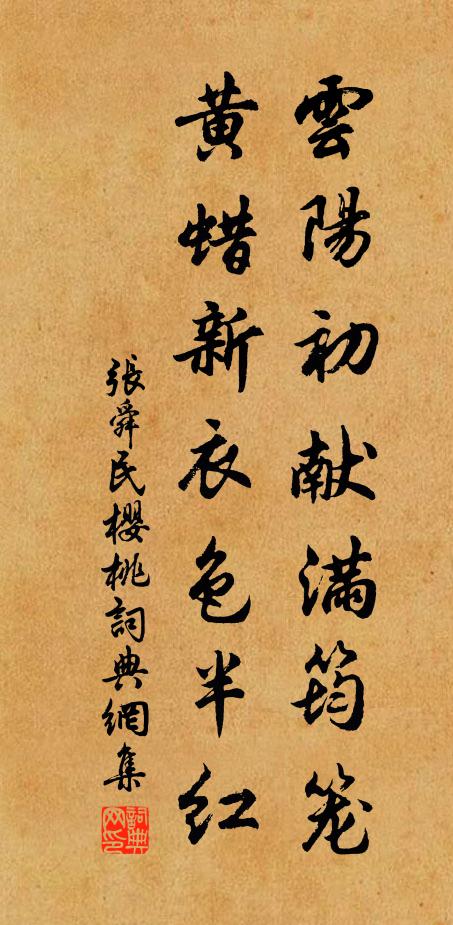 雲陽初献滿筠笼
黄蜡新衣色半红
張舜民櫻桃詞典網集
詞典網印